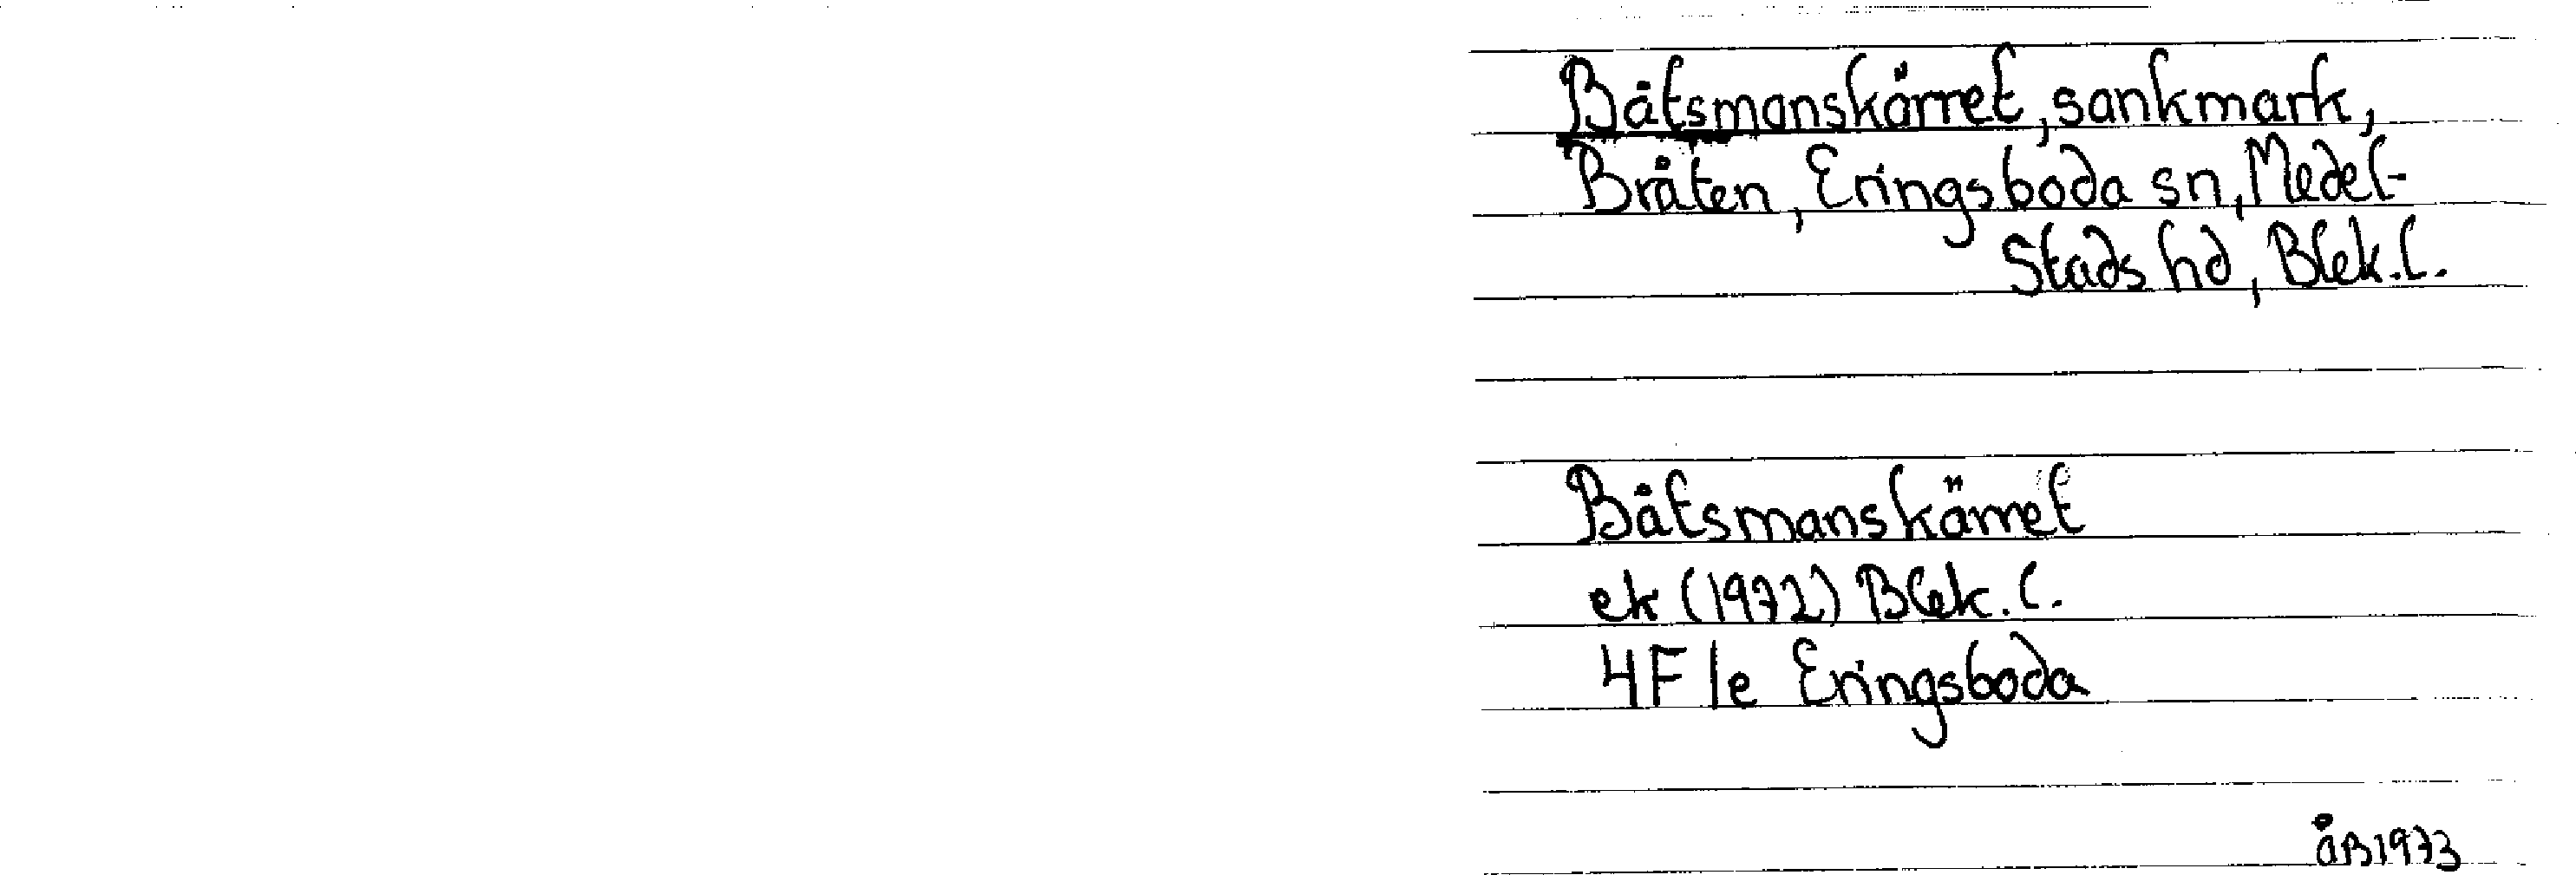 Båtsmanskärret, sankmark,
Bråten, Eringsboda sn, Medel-
Stads hd, Blek. l.
Båtsmanskärret
ek (1972) Blek. l.
4F 1e Eringsboda
åB1973